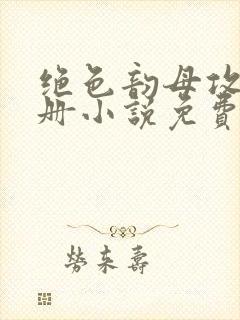 绝色韵母攻
册小说免费
劳来寿